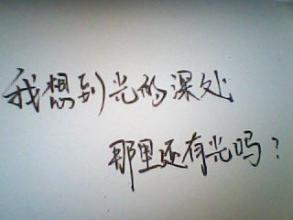 我想到光的深处
那里还有光吗?